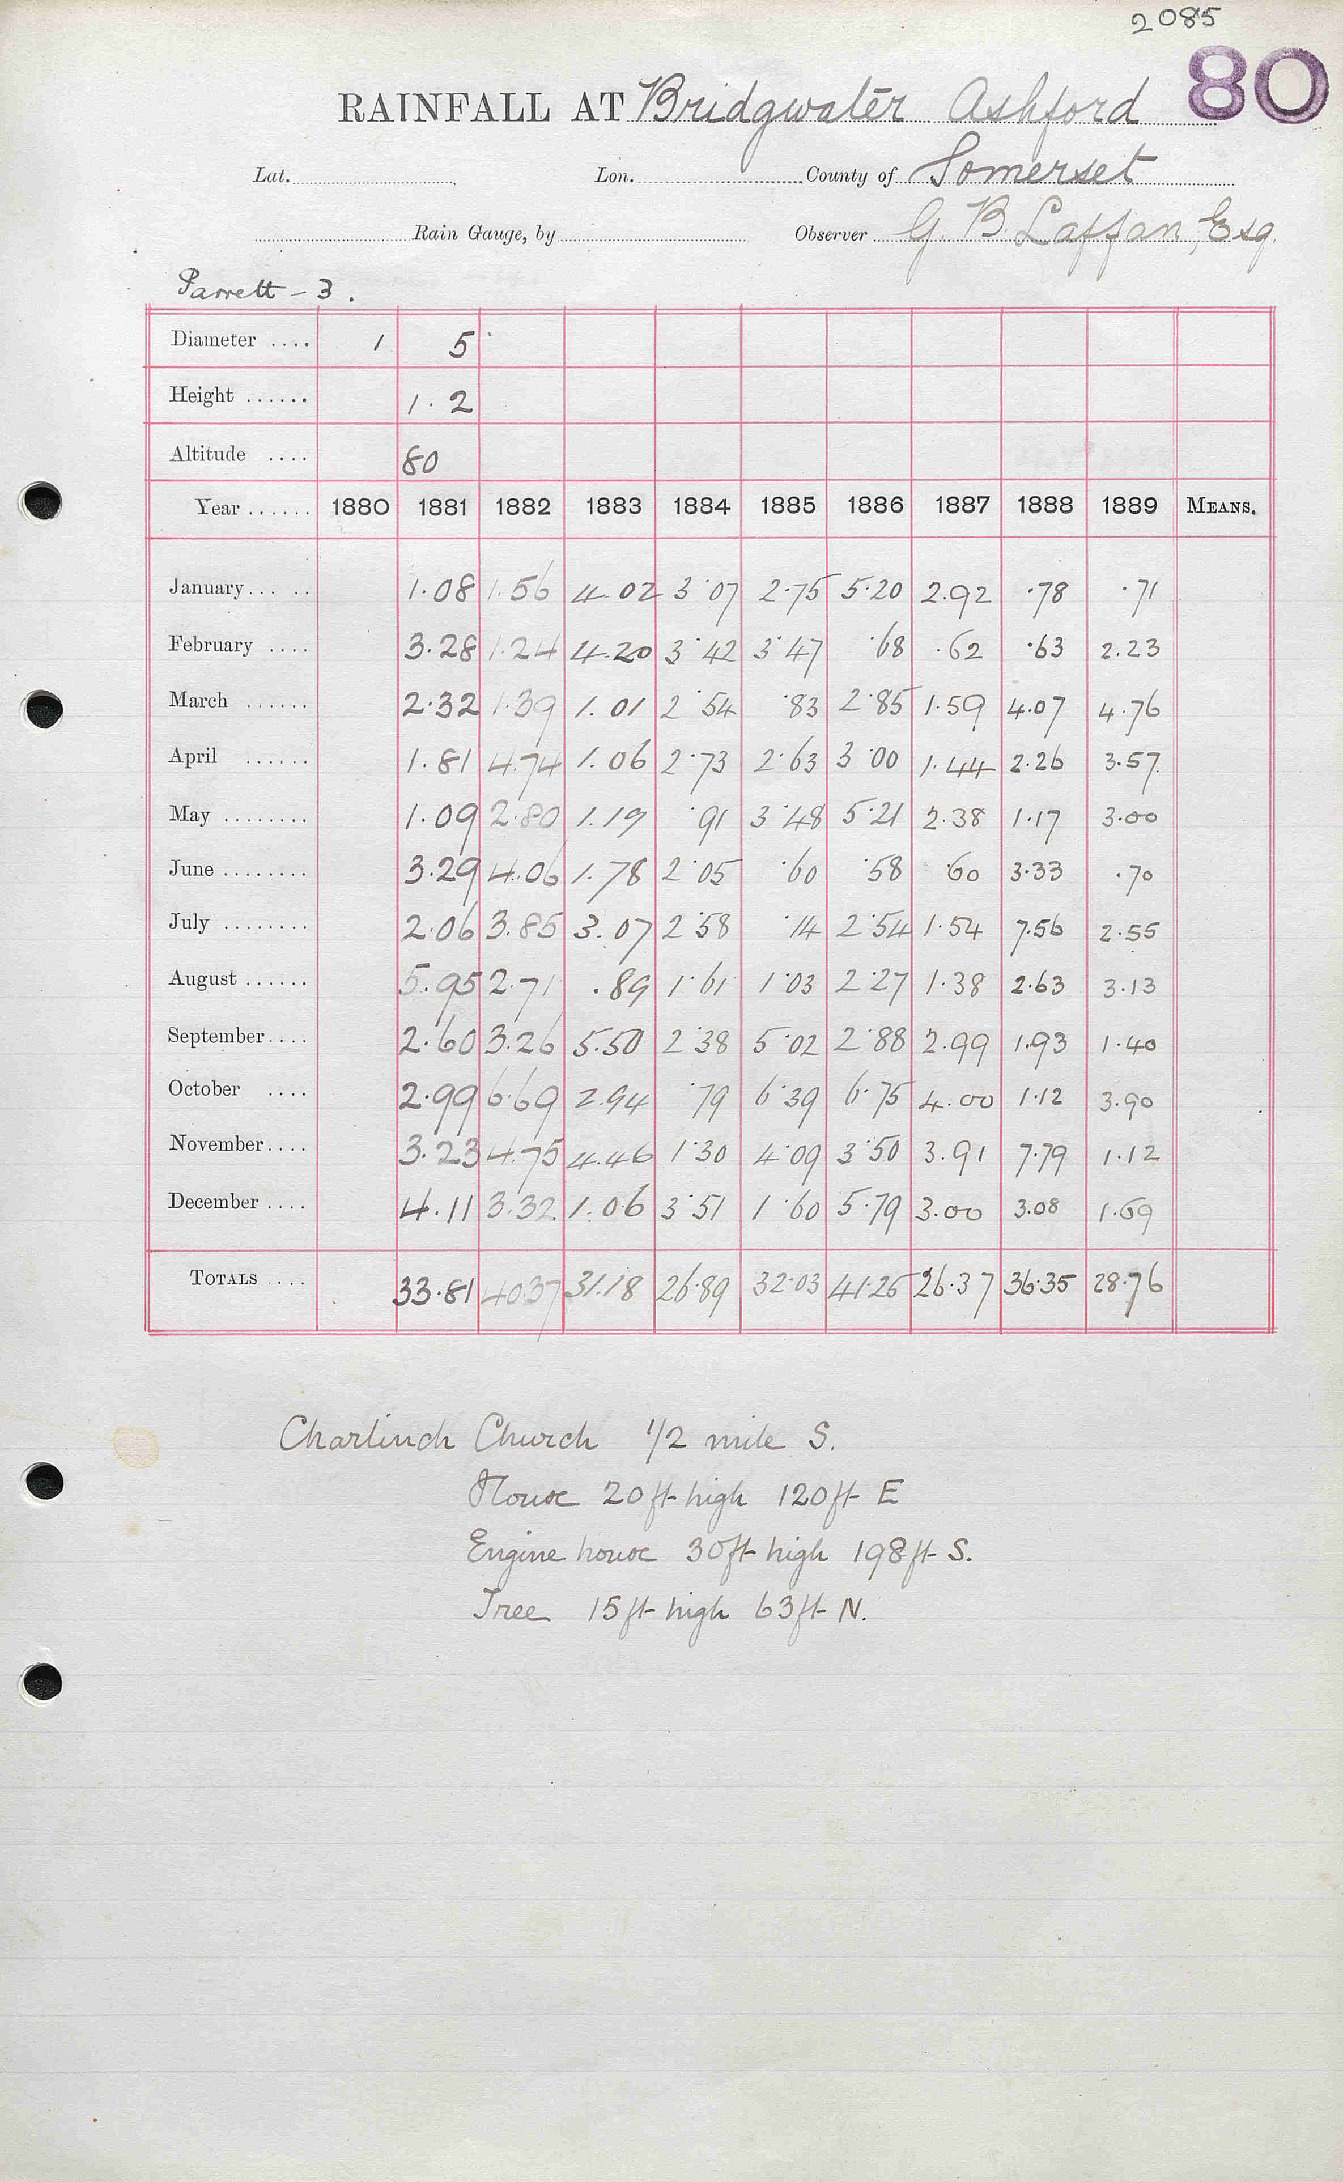 2085
80
RAINFALL AT Bridgwater Ashford
Lat. Lon. County of Somerset
Rain Gauge, by Observer G. B. Laffan, Esq.
Parrett - 3.
Diameter .... 1 5
Height ...... 1.2
Altitude .... 80
Year ...... 1880 1881 1882 1883 1884 1885 1886 1887 1888 1889 MEANS.
January ... .. 1.08 1.56 4.02 3.07 2.75 5.20 2.92 .78 .71
February .... 3.28 1.24 4.20 3.42 3.47 .68 .62 .63 2.23
March ...... 2.32 1.39 1.01 2.54 .83 2.85 1.59 4.07 4.76
April ...... 1.81 4.74 1.06 2.73 2.63 3.00 1.44 2.26 3.57
May ........ 1.09 2.80 1.19 .91 3.48 5.21 2.38 1.17 3.00
June ........ 3.29 4.06 1.78 2.05 .60 .58 .60 3.33 .70
July ........ 2.06 3.85 3.07 2.58 .14 2.54 1.54 7.56 2.55
August ...... 5.95 2.71 .89 1.61 1.03 2.27 1.38 2.63 3.13
September .... 2.60 3.26 5.50 2.38 5.02 2.88 2.99 1.93 1.40
October .... 2.99 6.69 2.94 .79 6.39 6.75 4.00 1.12 3.90
November .... 3.23 4.75 4.46 1.30 4.09 3.50 3.91 7.79 1.12
December .... 4.11 3.32 1.06 3.51 1.60 5.79 3.00 3.08 1.69
TOTALS .... 33.81 40.37 31.18 26.89 32.03 41.25 26.37 36.35 28.76
Charlinch Church 1/2 mile S.
House 20ft high 120ft E
Engine house 30ft high 198ft S.
Tree 15ft high 63ft N.